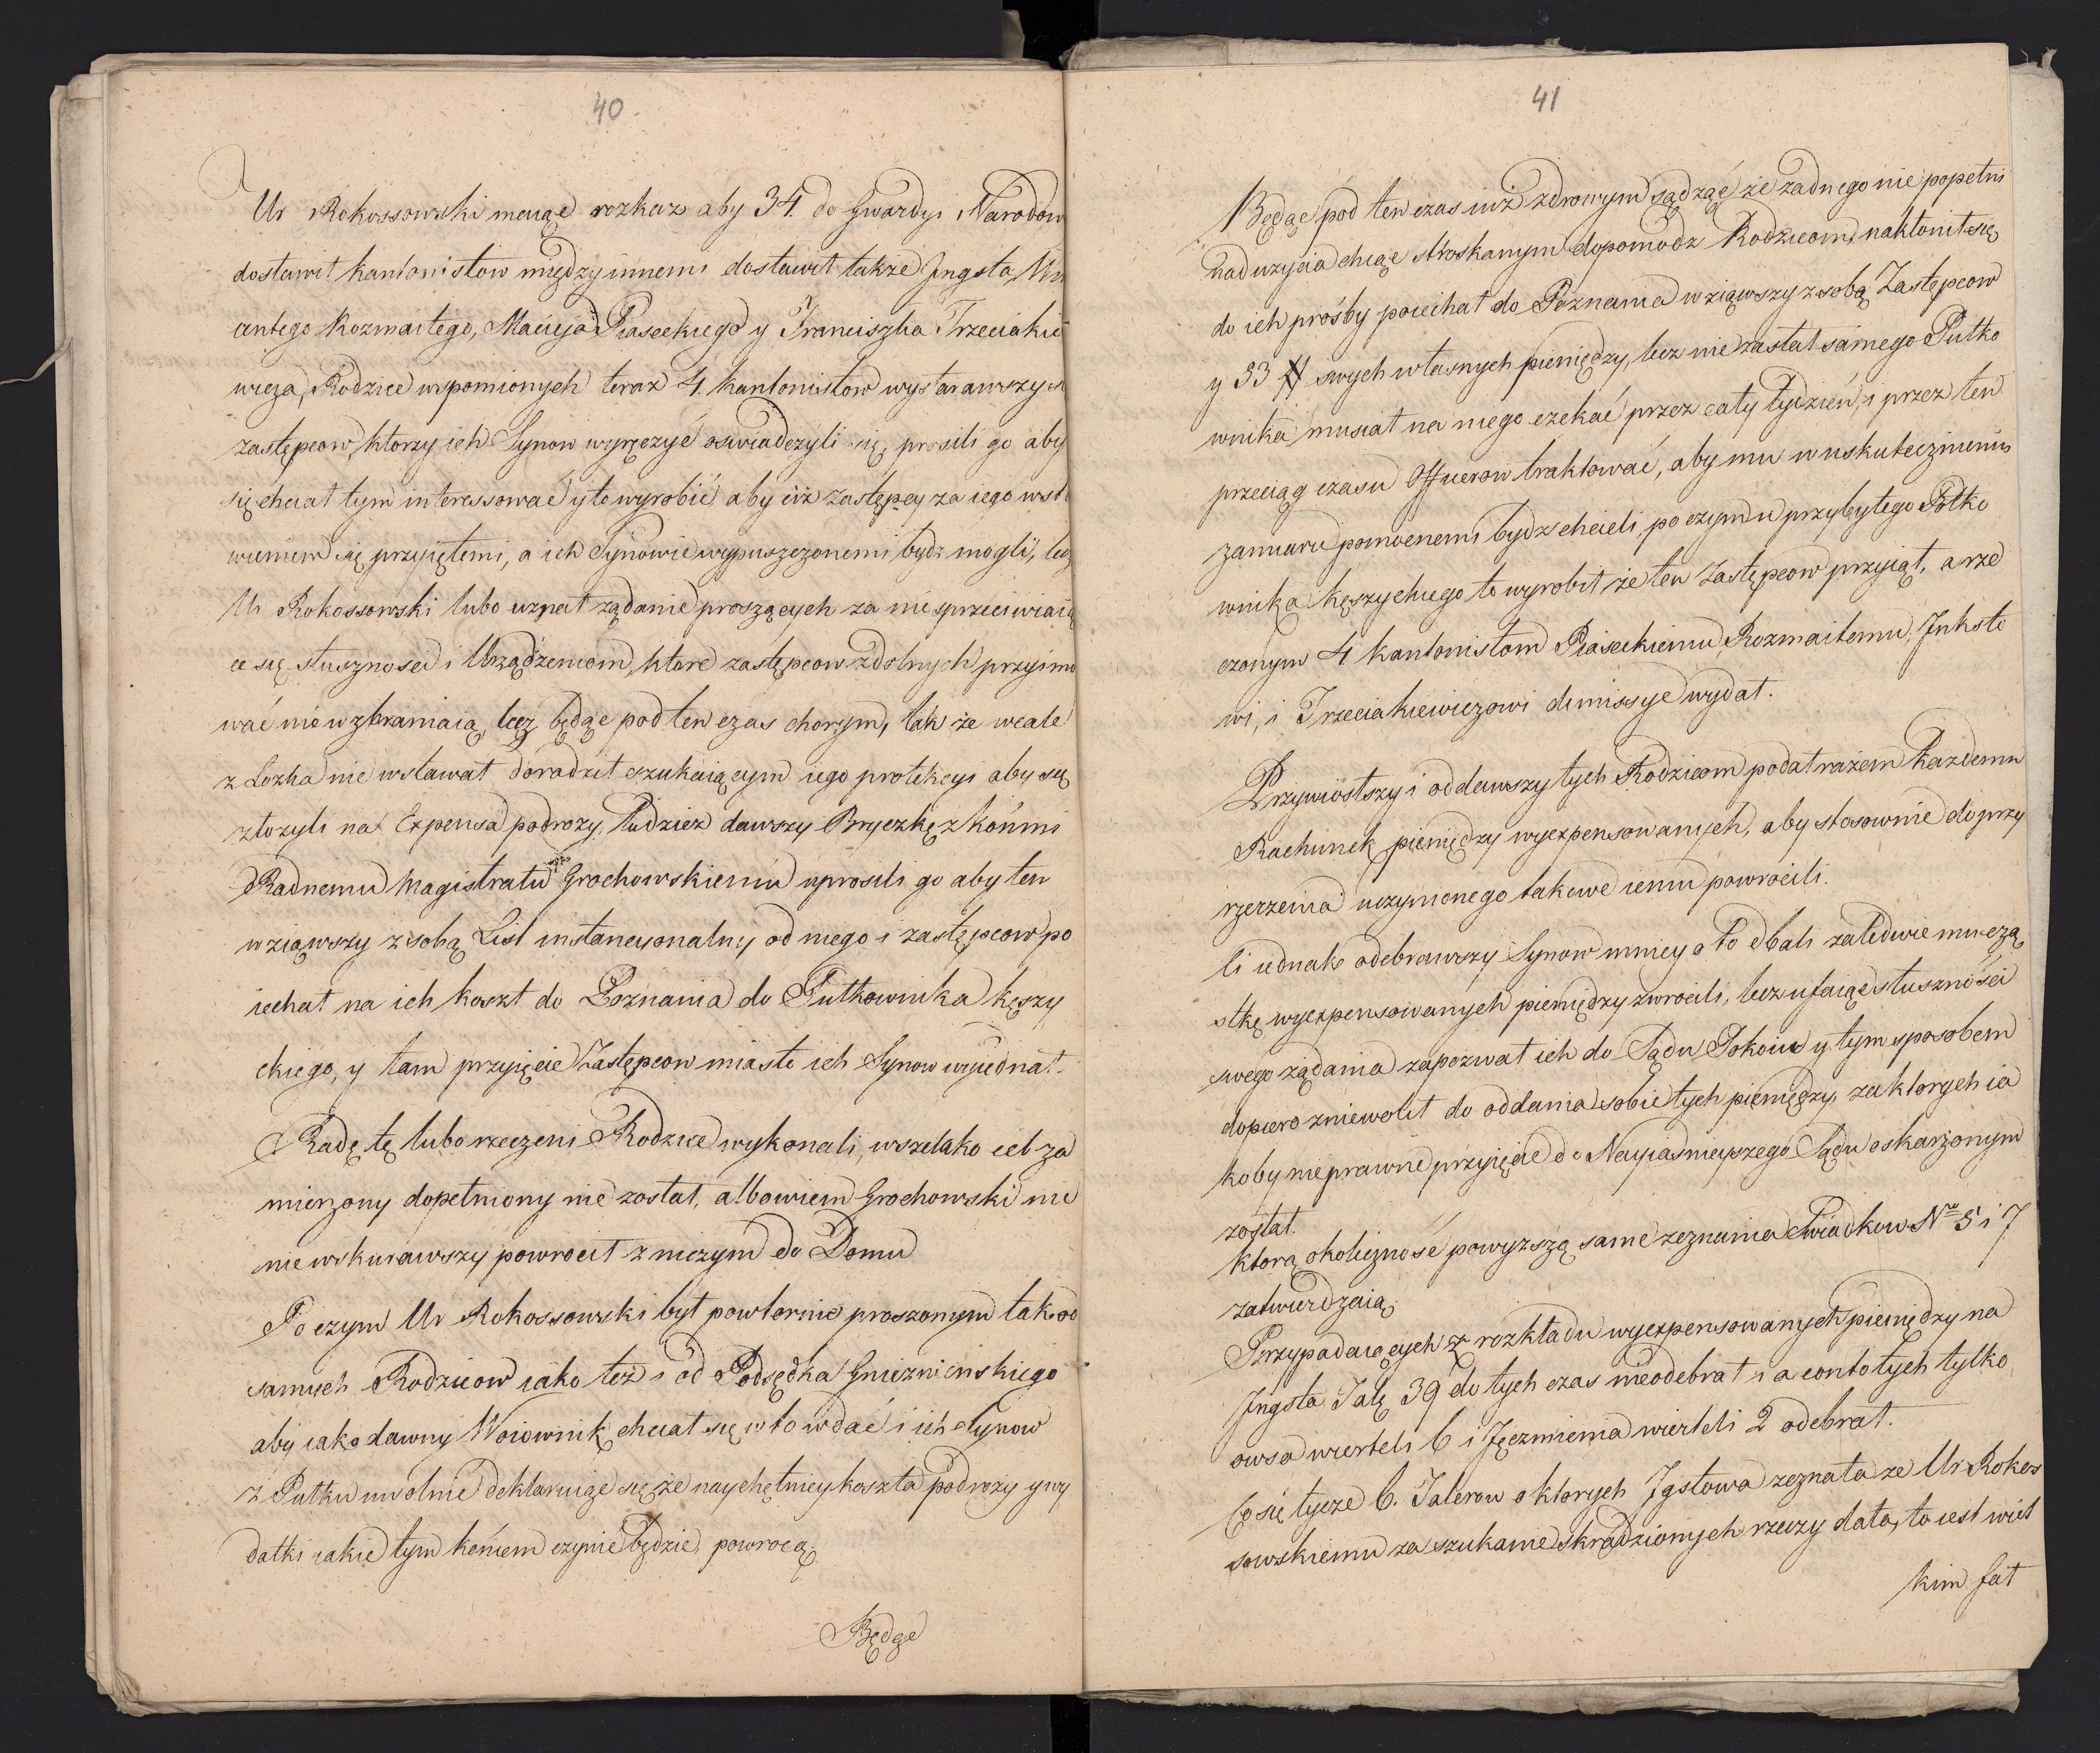 40
Ur Rokossowski maiąc rozkaz aby 34. do Gwardyi Narodow
dostawił kantonistow między innemi dostawił także Jngsta, Wa
antego Rozmaitego, Macieja Piaseckiego y Franciszka Trzeciakie
wicza, Rodzice wspomionych teraz 4. kantonistow wystarawszy
zastępcow, ktorzy ich Synow wyręczyć oswiadczyli się, prosili go aby
się chciał tym interessować y to wyrobić aby ciż zastępcy za iego wsta
wieniem się przyiętemi, a ich Synowie wypuszczonemi bydz mogli, lecz
Ur Rokossowski lubo uznał żądanie proszących za nie sprzeciwiaią
ce się słusznosci i Urządzeniom, ktore zastępcow zdolnych przyimo
wać nie wzbraniaią, lecz będąc pod ten czas chorym, tak że wcale
z Łozka nie wstawał doradził szukaiącym iego protekcyi aby się
złozyli na Expensa podrozy, tudziez dawszy Bryczkę z końmi
Radnemu Magistratu Grochowskiemu uprosili go aby ten
wziąwszy z sobą List instancyonalny od niego i zastępcow po
iechał na ich koszt do Poznania do Pułkownika Kęszy
ckiego, y tam przyięcie Zastępcow miasto ich Synow wyiednał.
Radę tę lubo rzeczeni Rodzice wykonali, wszelako cel za
mierzony dopełniony nie został, albowiem Grochowski nic
nie wskurawszy powrocił z niczym do Domu
Po czym Ur Rokossowski był powtornie proszonym tak od
samych Rodzicow iako też i od Podsędka Gnieznienskiego
aby iako dawny Woiownik chciał się w to wdać i ich Synow
z Pułku uwolnić deklaruiąc się że naychętniey koszta podrozy y wy
datki iakie tym końcem czynić będzie, powrocą.
Będąc
41
Będąc pod ten czas iuż zdrowym sądząc że żadnego nie popełni
nadużycia chcąc stroskanym dopomodz Rodzicom, nakłonił się
do ich prośby poiechał do Poznania wziąwszy z sobą Zastępcow
y 33 # swych własnych pieniędzy, lecz nie zastał samego Pułko
wnika musiał na niego czekać przez cały tydzień, i przez ten
przeciąg czasu Officerow traktować, aby mu w uskutecznieniu
zamiaru pomocnemi bydz chcieli, po czym u przybyłego Półko
wnika Kęszyckiego to wyrobił że ten Zastępcow przyiął, a rze
czonym 4 kantonistom Piaseckiemu, Rozmaitemu, Jnksto
wi, i Trzeciakiewiczowi dimissye wydał.
Przywiosłszy i oddawszy tych Rodzicom podał razem każdemu
Rachunek pieniędzy wyexpensowanych, aby stosownie do przy
rzerzenia uczynionego takowe iemu powrocili.
li iednak odebrawszy Synow mniey o to dbali zaledwie mu czą
stkę wyexpensowanych pieniędzy zwrocili, lecz ufaiąc słusznośći
swego żądania zapozwał ich do Sądu Pokoiu y tym sposobem
dopiero zniewolił do oddania sobie tych pieniędzy, za ktorych ia
koby nieprawne przyięcie do Nayiaśnieyszego Sądu oskarżonym
został.
ktorą okoliczność powyzszą same zeznania Swiadkow No 5 i 7
zatwierdzaią.
Przypadaiących z rozkładu wyexpensowanych pieniędzy na
Jngsta Talę 39 do tych czas nieodebrał i a conto tych tylko
owsa wierteli 6 i Jęczmienia wierteli 2 odebrał.
Co się tycze 6. Talerow o ktorych Jgstowa zeznała ze Ur Rokos
sowskiemu za szukanie skradzionych rzeczy dała, to iest wiel
kim fał